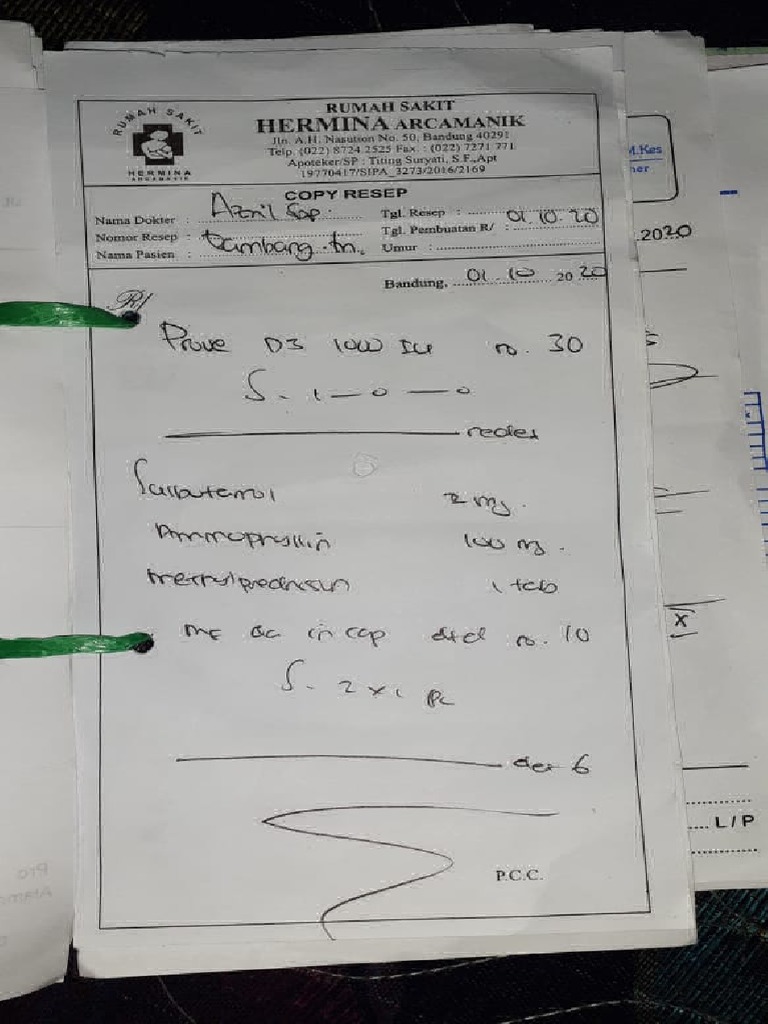 RUMAH SAKIT
HERMINA
ARCAMANIK
RUMAH SAKIT
HERMINA ARCAMANIK
Jln. A.H. Nasution No. 50, Bandung 40291
Telp. (022) 8724 2525 Fax. : (022) 7271 771
Apoteker/SP : Titing Suryati, S.F.,Apt
19770417/SIPA_3273/2016/2169
COPY RESEP
Nama Dokter : Azril Sp.
Tgl. Resep : 01.10.20
Nomor Resep :
Tgl. Pembuatan R/ :
Nama Pasien : Bambang. tn.
Umur :
Bandung, 01.10 2020
R/
Prove D3 1000 IU no. 30
S. 1 — 0 — 0
Salbutamol 2 mg.
Aminophyllin 100 mg.
Methylprednisolon 1 tab
mf da in cap dtd no. 10
S. 2 x 1 pc
det 6
P.C.C.
M.Kes
2020
X
L / P